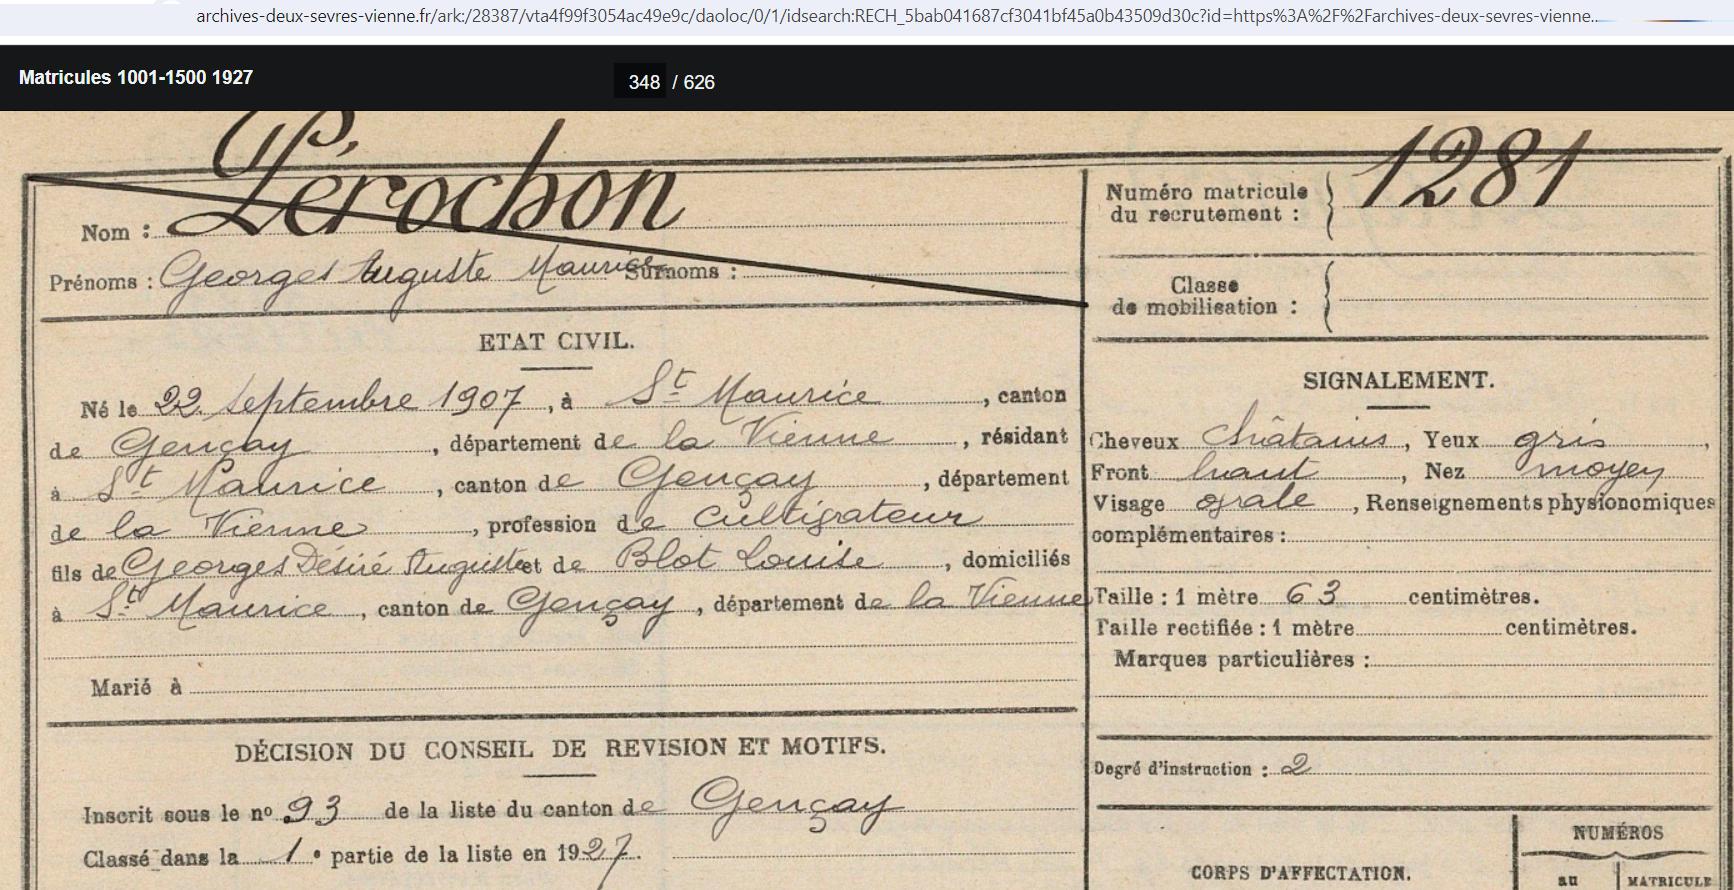 archives-deux-sevres-vienne.fr/ark:/28387/vta4f99f3054ac49e9c/daoloc/0/1/idsearch:RECH_5bab041687cf3041bf45a0b43509d30c?id=https%3A%2F%2Farchives-deux-sevres-vienne...
Matricules 1001-1500 1927
348 / 626
Nom : Pérochon
Prénoms : Georges Auguste Maurice Surnoms :
ETAT CIVIL.
Né le 22 Septembre 1907, à St Maurice, canton
de Gençay, département de la Vienne, résidant
à St Maurice, canton de Gençay, département
de la Vienne, profession de Cultivateur
fils de Georges Désiré Auguste et de Blot Louise, domiciliés
à St Maurice, canton de Gençay, département de la Vienne
Marié à
DÉCISION DU CONSEIL DE REVISION ET MOTIFS.
Inscrit sous le no 93 de la liste du canton de Gençay
Classé dans la 1e partie de la liste en 1927.
Numéro matricule
du recrutement : 1281
Classe
de mobilisation :
SIGNALEMENT.
Cheveux châtains, Yeux gris,
Front haut, Nez moyen
Visage ovale, Renseignements physionomiques
complémentaires :
Taille : 1 mètre 63 centimètres.
Taille rectifiée : 1 mètre centimètres.
Marques particulières :
Degré d'instruction : 2
CORPS D'AFFECTATION.
NUMÉROS
au
MATRICULE